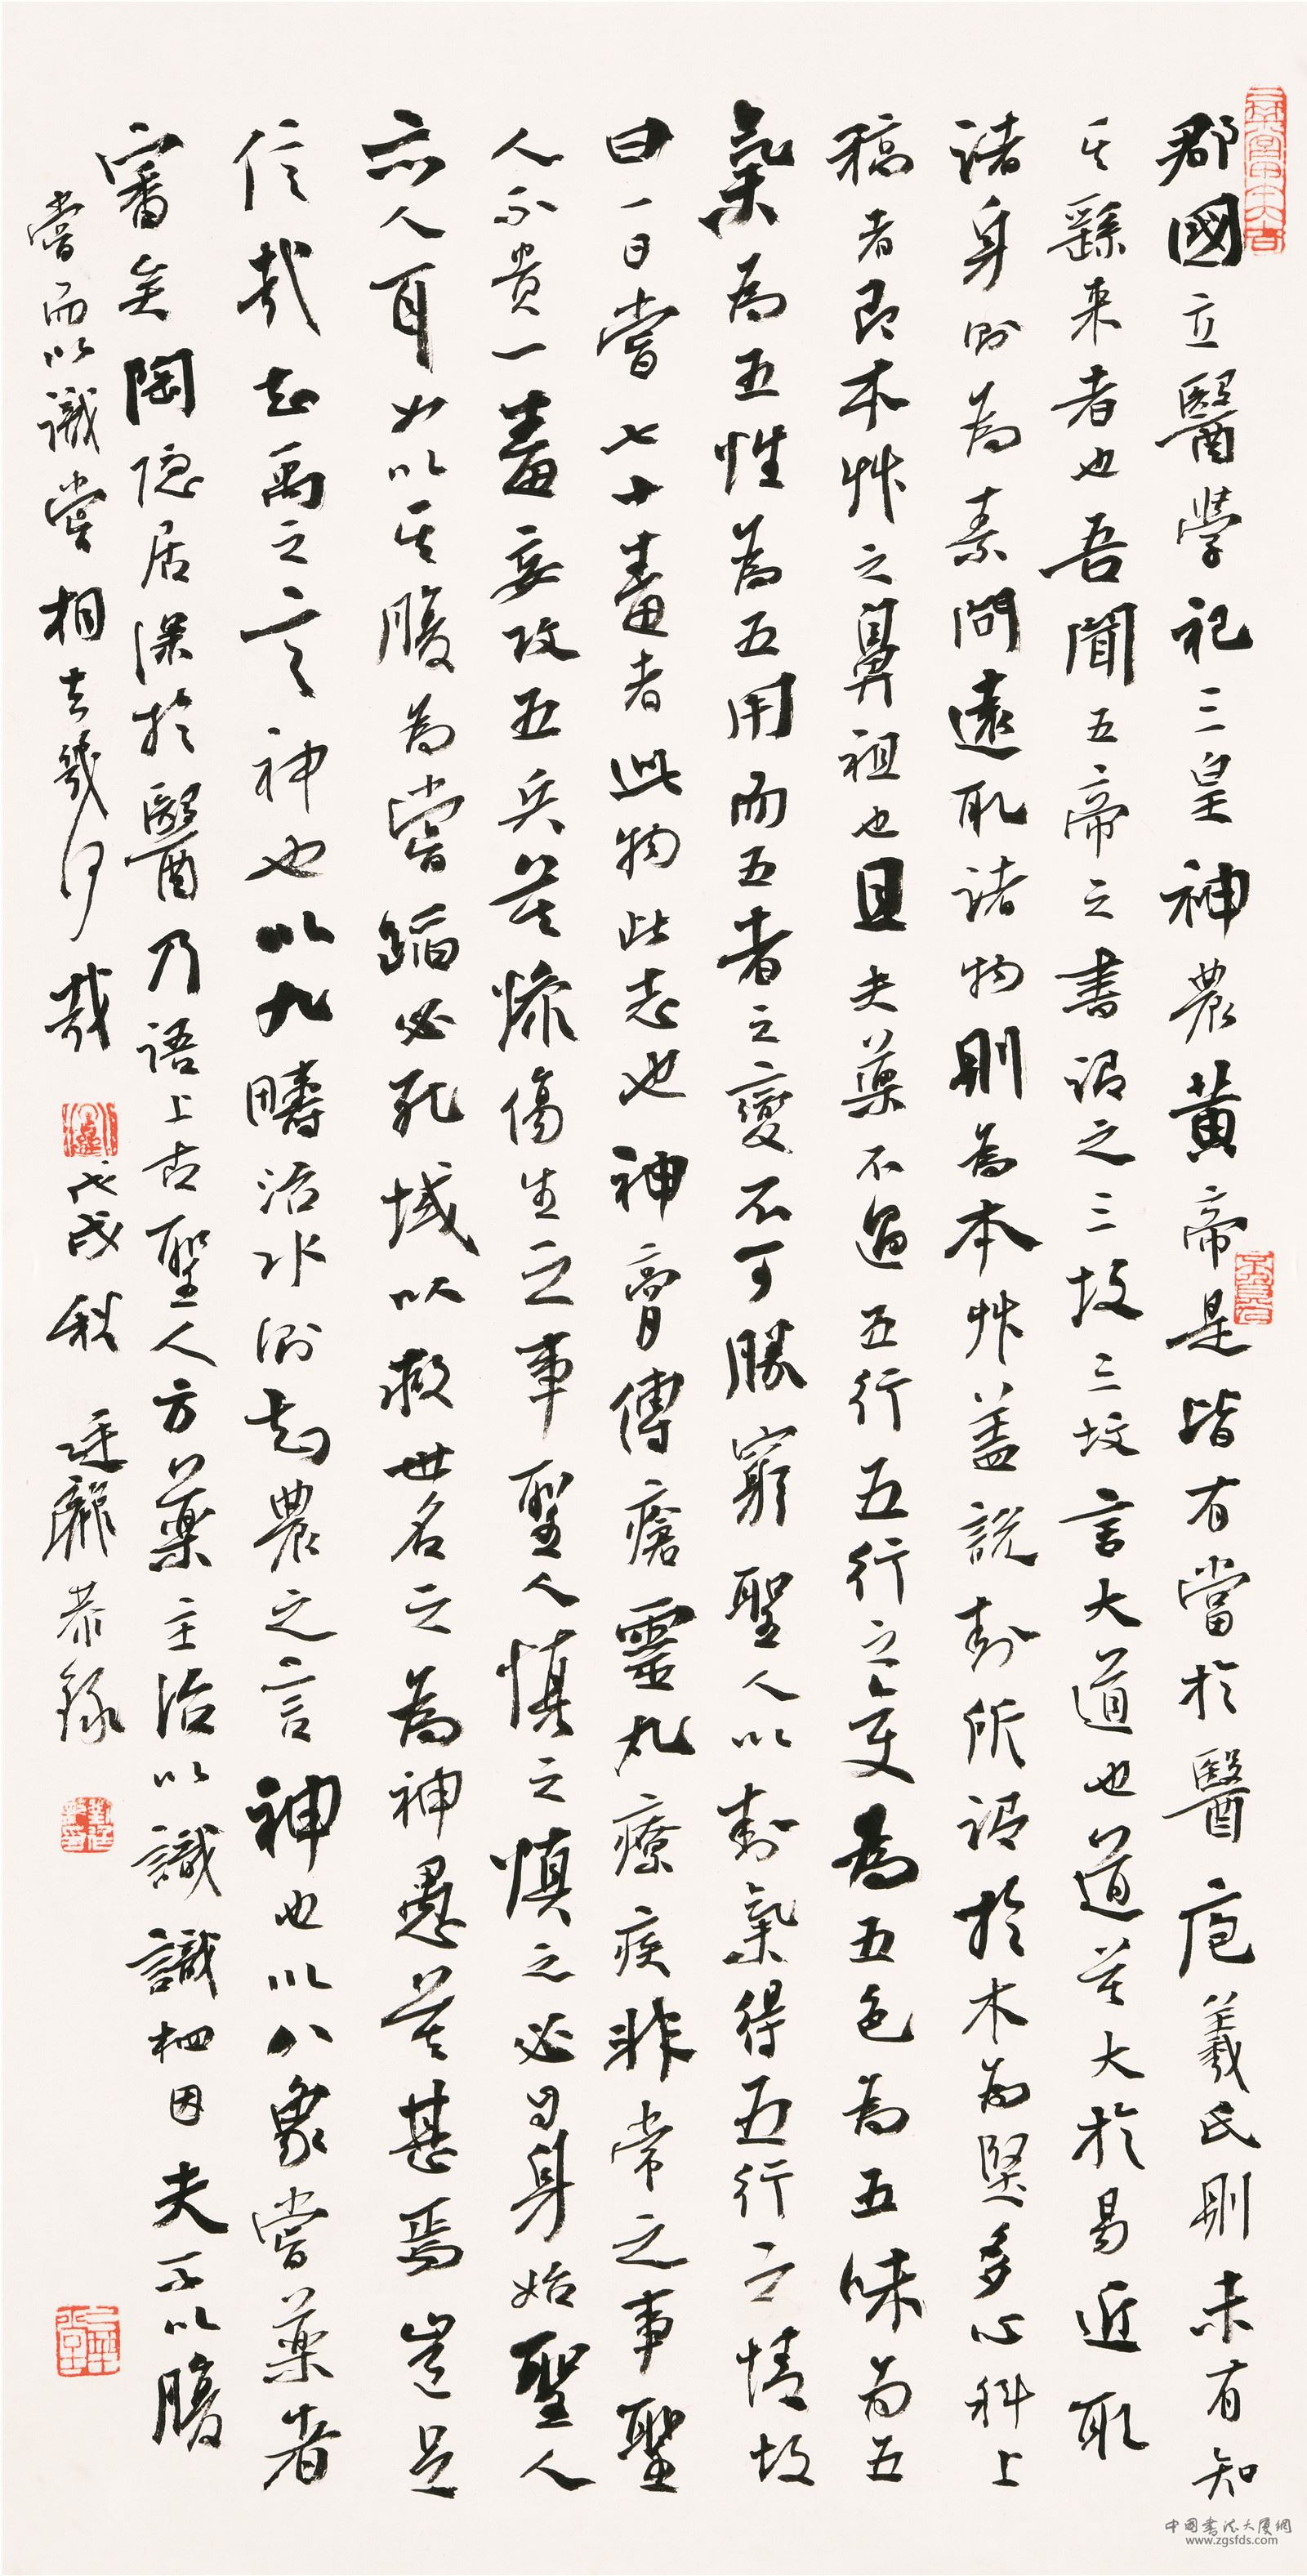 郡國立醫學祀三皇神農黃帝是皆有當於醫庖羲氏則未有知
其繇来者也吾聞五帝之書謂之三坟三坟言大道也道莫大於易近取
諸身則為素問遠取諸物則為本艸蓋說卦所謂於木為堅多心科上
稿者即本艸之鼻祖也且夫藥不過五行五行之变為五色為五味為五
氣為五性為五用而五者之變不可勝窮聖人以卦氣得五行之情故
曰一日嘗七十毒者此物此志也神膏傅瘡靈丸療疾非常之事聖
人不貴一毒妄攻五兵莫慘傷生之事聖人慎之慎之必自身始聖人
亦人耳如以其腹為嘗蹈必死域以救世名之為神愚莫甚焉豈足
信哉知禹之言神也以九疇治水則知農之言神也以八象嘗藥者
審矣陶隐居深於醫乃語上古聖人方藥主治以識識相因夫不以腹
嘗而以識嘗相去幾何哉
戊戌秋 廷龍恭錄
中國書法大厦網
www.zgsfds.com